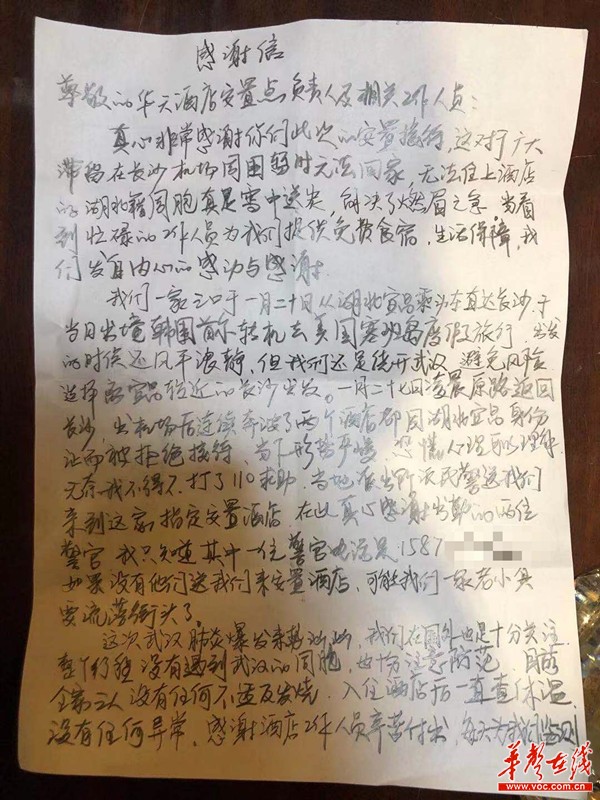 感谢信
尊敬的华天酒店安置点负责人及相关工作人员：
真心非常感谢你们此次的安置接待，这对于广大
滞留在长沙机场周围暂时无法回家，无法住上酒店
的湖北籍同胞真是雪中送炭，解决了燃眉之急，当看
到忙碌的工作人员为我们提供免费食宿，生活保障，我
们发自内心的感动与感谢。
我们一家三口于一月二十日从湖北宜昌乘动车直达长沙，于
当日出境韩国首尔转机去美国塞班岛度假旅行，出发
的时候还风平浪静，但我们还是绕开武汉，避免风险
选择离宜昌较近的长沙出发。一月二十七日凌晨原路返回
长沙，出机场后连续奔波了两个酒店都因湖北宜昌身份
证而被拒绝接待，当下形势严峻，恐慌心理可以理解，
无奈我不得不打了110求助，当地派出所派民警送我们
来到这家指定安置酒店，在此真心感谢出勤的两位
警官，我只知道其中一位警官电话是1587
如果没有他们送我们来安置酒店，可能我们一家老小真
要流落街头了。
这次武汉肺炎爆发来势汹汹，我们在国外也是十分关注，
整个行程没有遇到武汉的同胞，也十分注意防范，目前
全家三人没有任何不适及发烧，入住酒店后一直查体温
没有任何异常，感谢酒店工作人员辛苦付出，每天为我们监测
华声在线
www.voc.com.cn